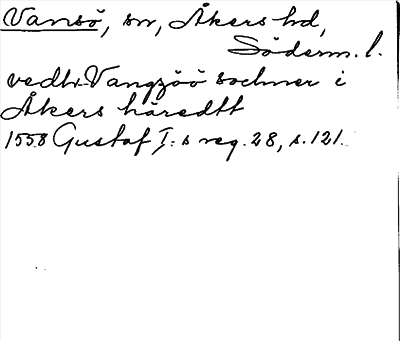 Vansö, sn, Åkers hd,
Söderm. l.
vedh Vangzöö sochner i
Åkers häredtt
1558 Gustaf I:s reg. 28, s. 121.